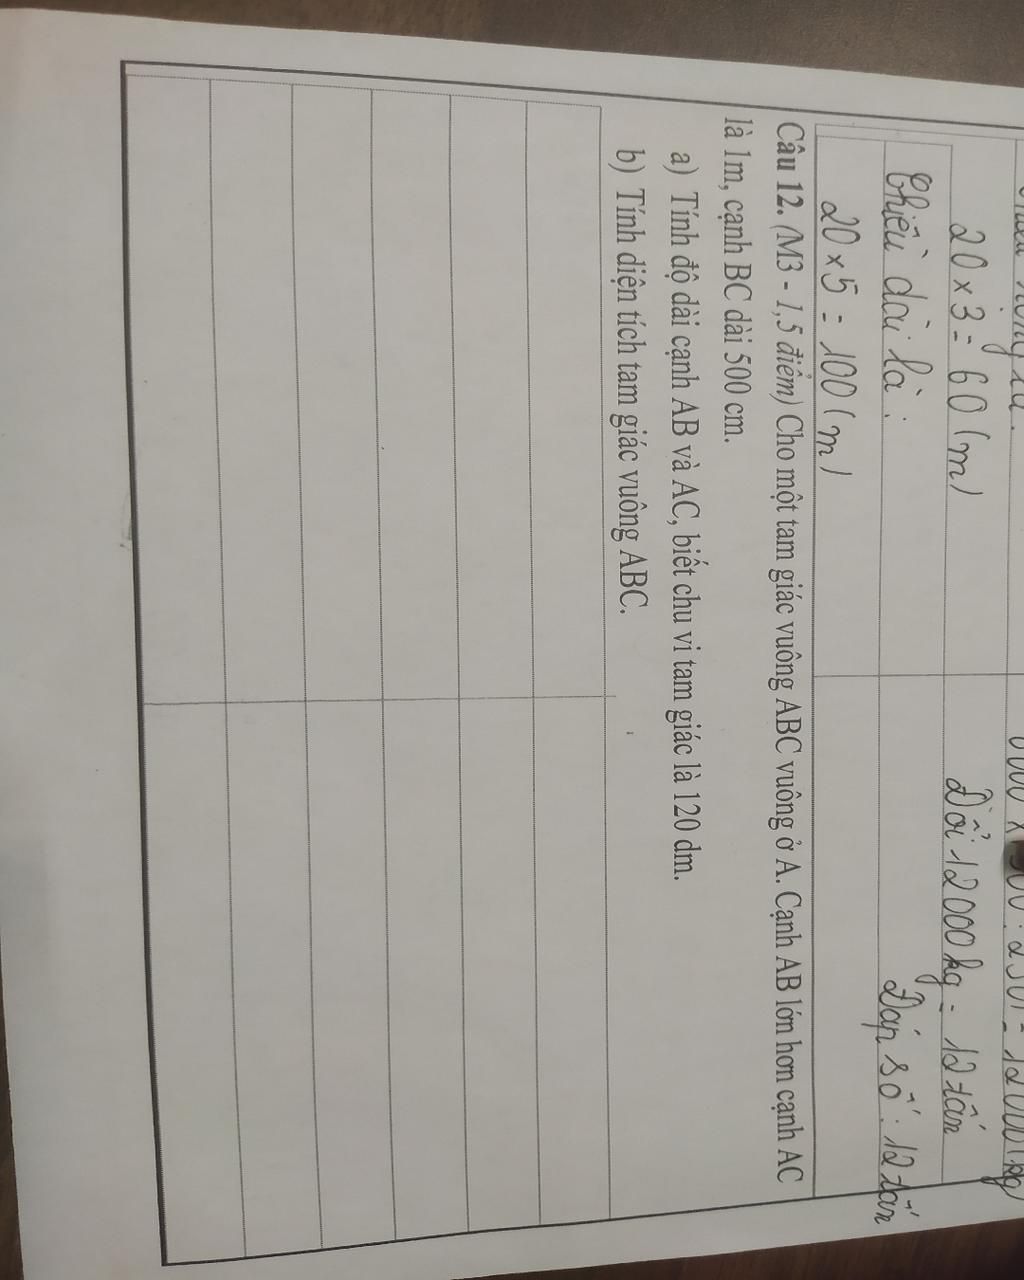 20 x 3 = 60 (m)
Chiều dài là :
20 x 5 = 100 (m)
Đổi 12 000 kg = 12 tấn
Đáp số : 12 tấn
Câu 12. (M3 - 1,5 điểm) Cho một tam giác vuông ABC vuông ở A. Cạnh AB lớn hơn cạnh AC
là 1m, cạnh BC dài 500 cm.
a) Tính độ dài cạnh AB và AC, biết chu vi tam giác là 120 dm.
b) Tính diện tích tam giác vuông ABC.